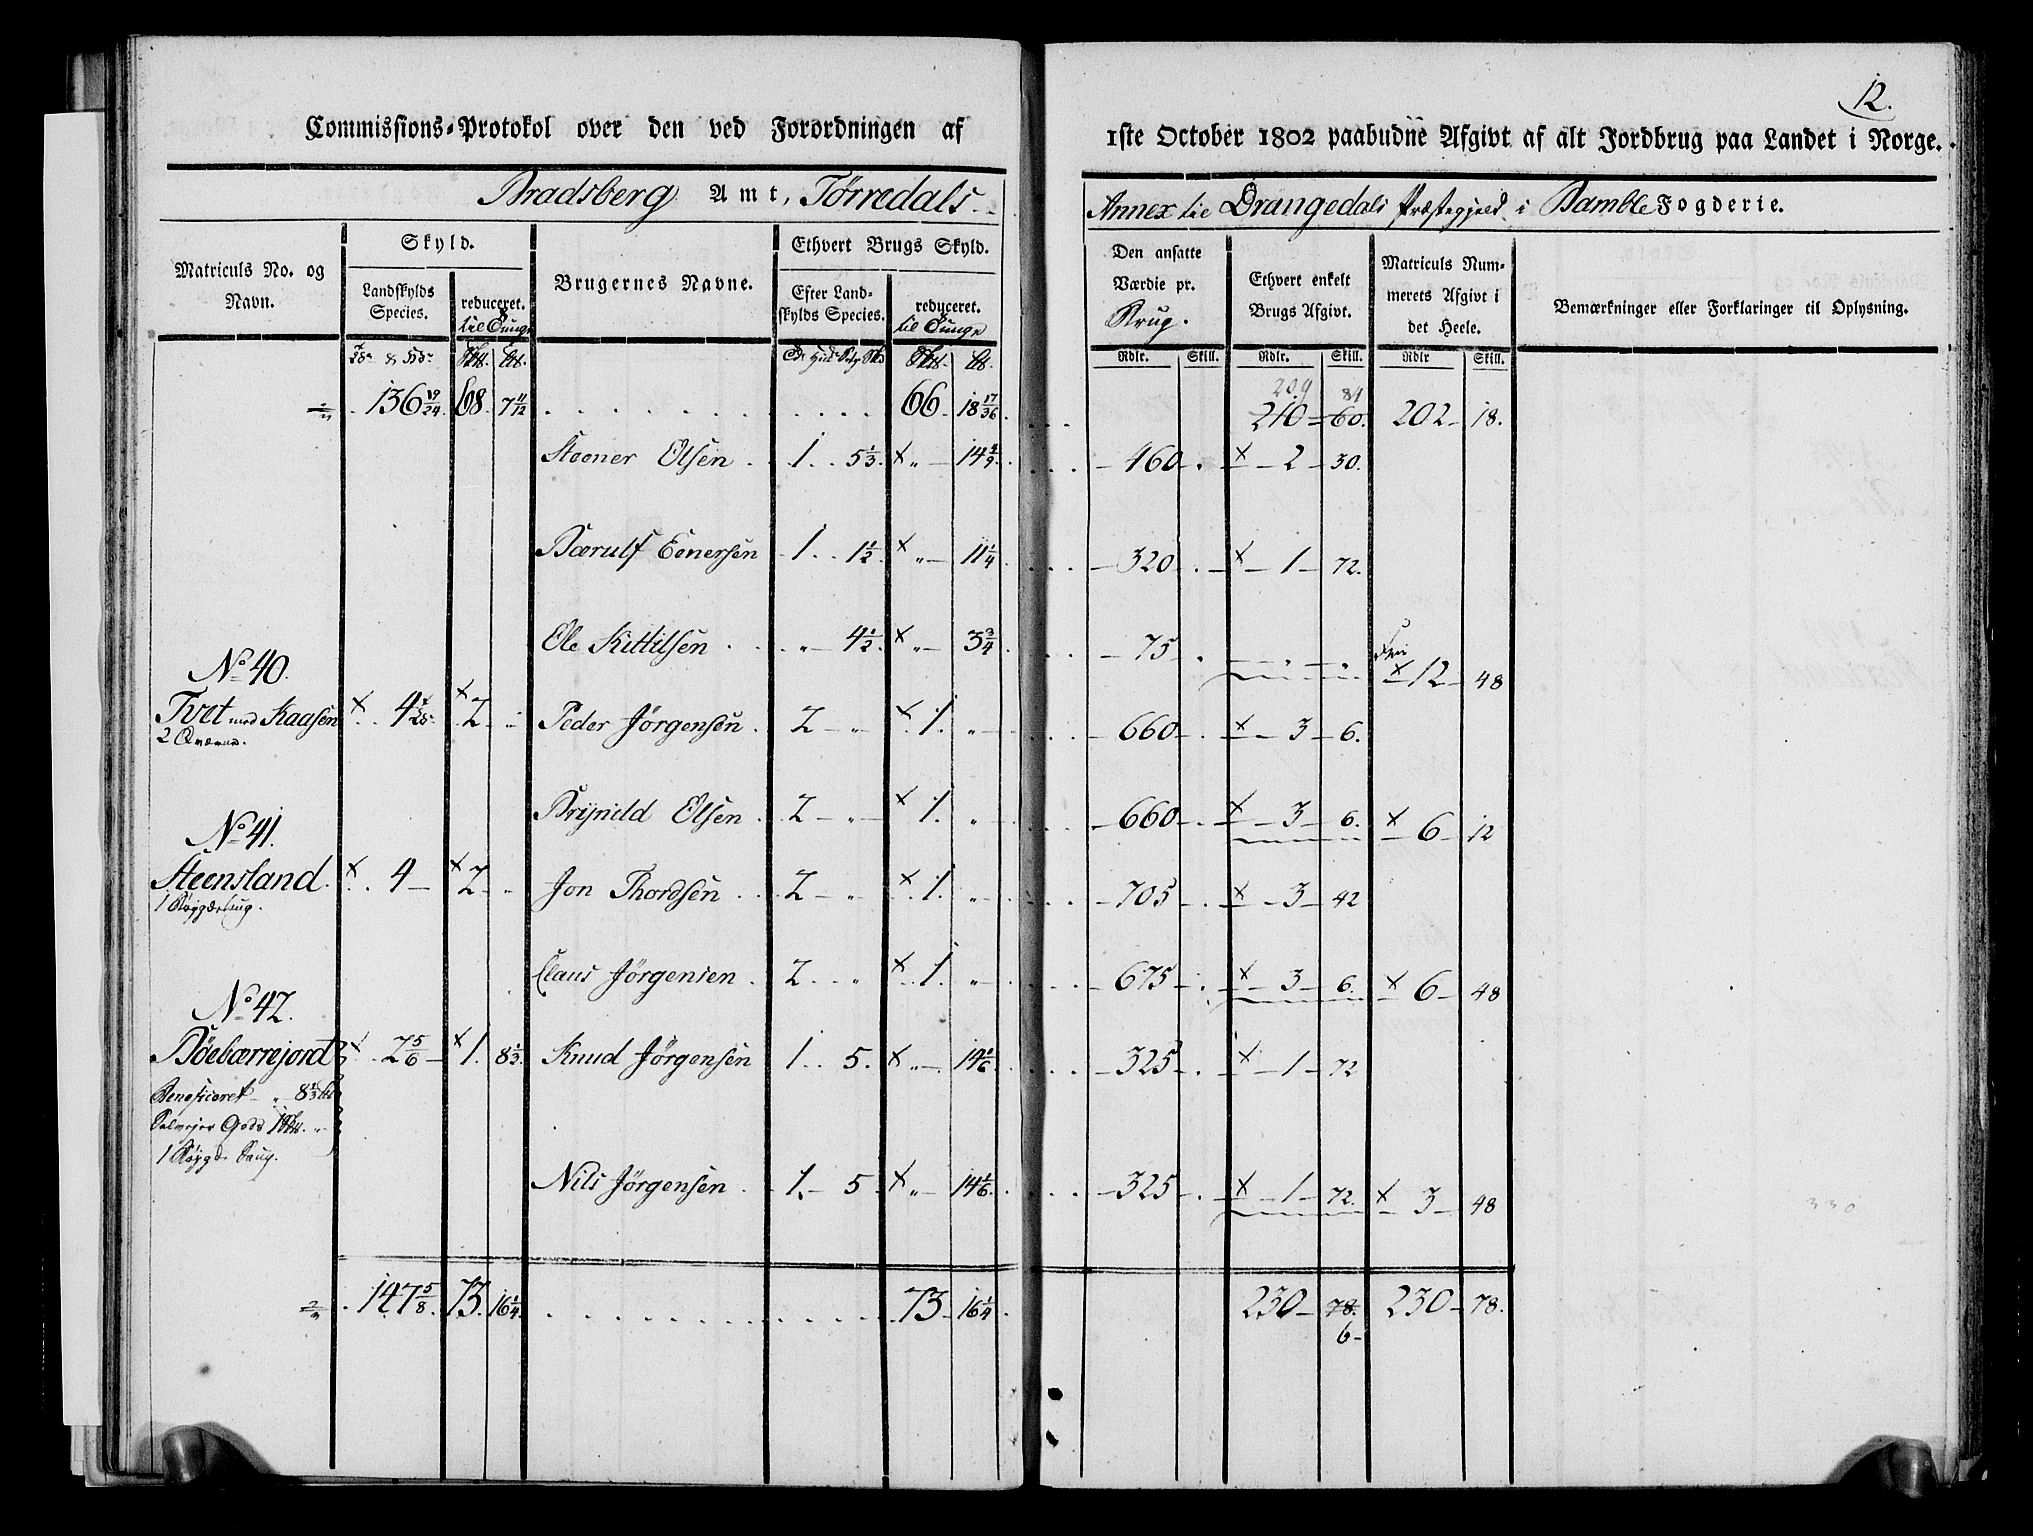 12.
Commissions-Protokol over den ved Forordningen af 1ste October 1802 paabudne Afgivt af alt Jordbrug paa Landet i Norge.
Bradsberg Amt, Törredals Annex til Drangedals Præstegjeld i Bamble Fogderie.
Matriculs No. og Navn.
Skyld.
Landskylds Species.
reduceret. til Tunge
Brugernes Navne.
Ethvert Brugs Skyld.
Efter Landskylds Species.
reduceret. til Tunge
Den ansatte Værdie pr. Brug.
Ethvert enkelt Brugs Afgivt.
Matriculs Nummerets Afgivt i det Heele.
Bemærkninger eller Forklaringer til Oplysning.
Rdlr. Skill. Rdlr. Skill. Rdlr Skill.
209 84
136 19/24 68 7 11/12 66 18 17/36 210 60 202 18.
Steener Olsen 1 5 1/3 x " 14 4/9 460 x 2 30.
Bærulf Eenersen 1 1 1/2 x " 11 1/4 320 x 1 72.
Ole Kittilsen " 4 1/2 x " 3 3/4 75 " " Fri x 12 48
No 40.
Tvet med Kaasen x 4 x 2 " Peder Jörgensen 2 " x 1. " 660 x 3 6.
2 Qværne.
Brynild Olsen 2 " x 1. " 660 x 3 6. x 6 12
No 41.
Steensland x 4 x 2 Jon Thordsen 2 " x 1. " 705 x 3 42
1 Bøygdesaug.
Claus Jörgensen 2 " x 1. " 675 x 3 6. x 6 48
No 42.
Böebærrejord x 2 5/6 x 1. 8 1/3 Knud Jörgensen 1 5. x " 14 1/6 325 x 1 72
Beneficeret " 8 1/3
Selvejer Gods 1 "
1 Bøygde Saug.
Nils Jörgensen 1 5 x " 14 1/6 325 x 1 72. x 3 48
330
147 5/8 73 16 1/4 73 16 1/4 230 78. 230 78.
6